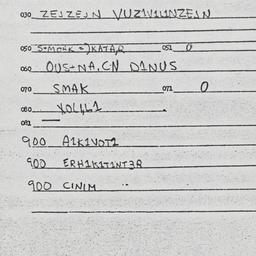 030 ZEJZEJN VUZIVILINZEJN
050 S+MORK =)KATAR 051 0
060 OUS+NA, CN DINUS
070 SMAK 071 0
080
081 —
900 A1K1VOT1
900 ERH1K1T1NT3R
900 CINIM